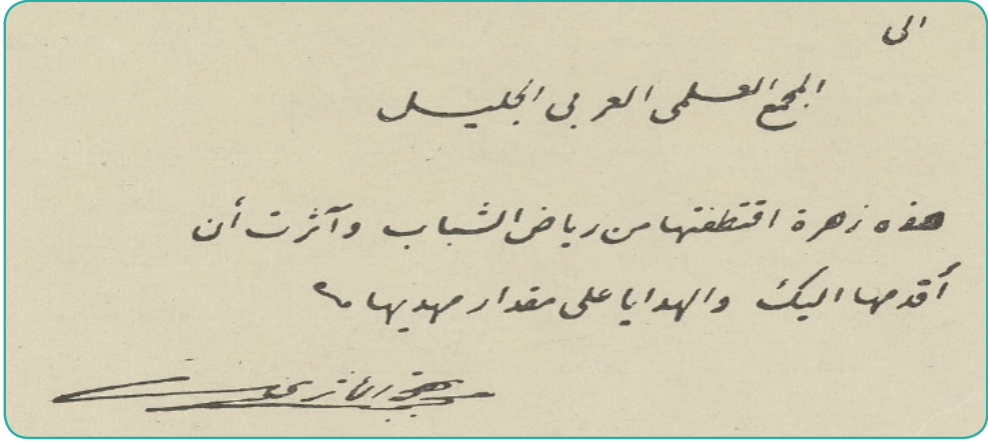 الى
المجمع العلمي العربي الجليل
هذه زهرة اقتطفتها من رياض الشباب وآثرت أن
أقدمها اليك والهدايا على مقدار مهديها